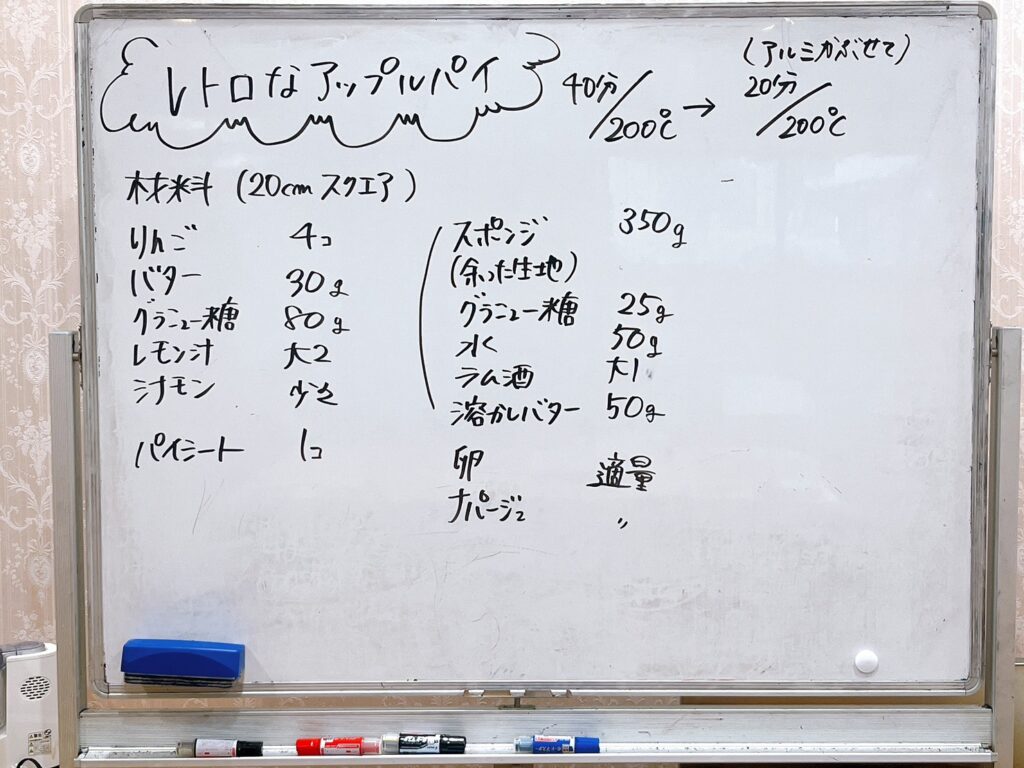 レトロなアップルパイ
40分/200℃ → 20分/200℃
(アルミかぶせて)
材料 (20cmスクエア)
りんご 4コ
バター 30g
グラニュー糖 80g
レモン汁 大2
シナモン 少々
パイシート 1コ
スポンジ 350g
(余った生地)
グラニュー糖 25g
水 50g
ラム酒 大1
溶かしバター 50g
卵 適量
ナパージュ 〃